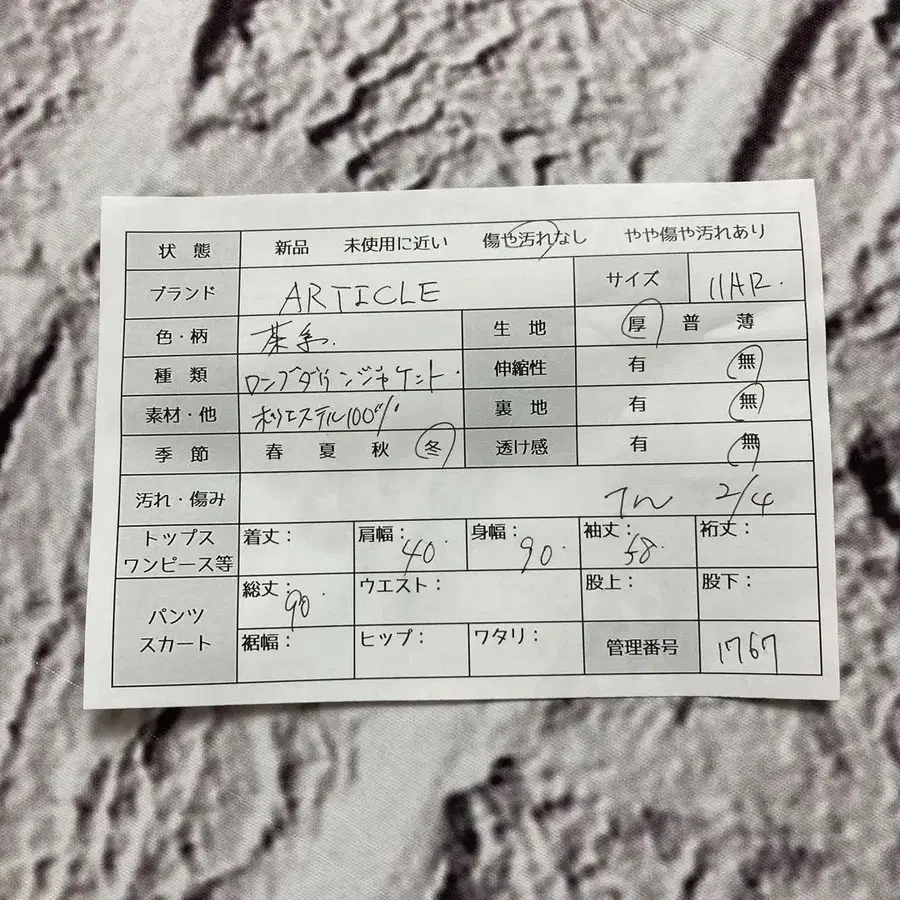 状 態 新品 未使用に近い 傷や汚れなし やや傷や汚れあり
ブランド ARTICLE サイズ 11AR.
色・柄 茶系. 生 地 厚 普 薄
種 類 ロングダウンジャケット. 伸縮性 有 無
素材・他 ポリエステル100% 裏 地 有 無
季 節 春 夏 秋 冬 透け感 有 無
汚れ・傷み 2/4
トップス ワンピース等 着丈: 肩幅: 40. 身幅: 90. 袖丈: 58. 裄丈:
パンツ スカート 総丈: 90. ウエスト: 股上: 股下:
裾幅: ヒップ: ワタリ: 管理番号 1767